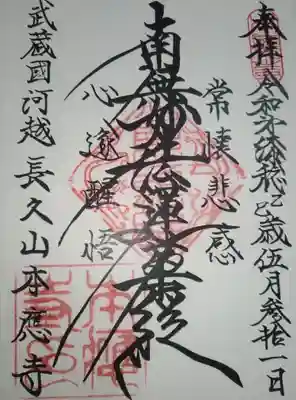 奉拝 令和才漆稔乙巳歳伍月参拾一日
常懐悲感
南無妙法蓮華経
心遂醒悟
武蔵國河越 長久山本應寺